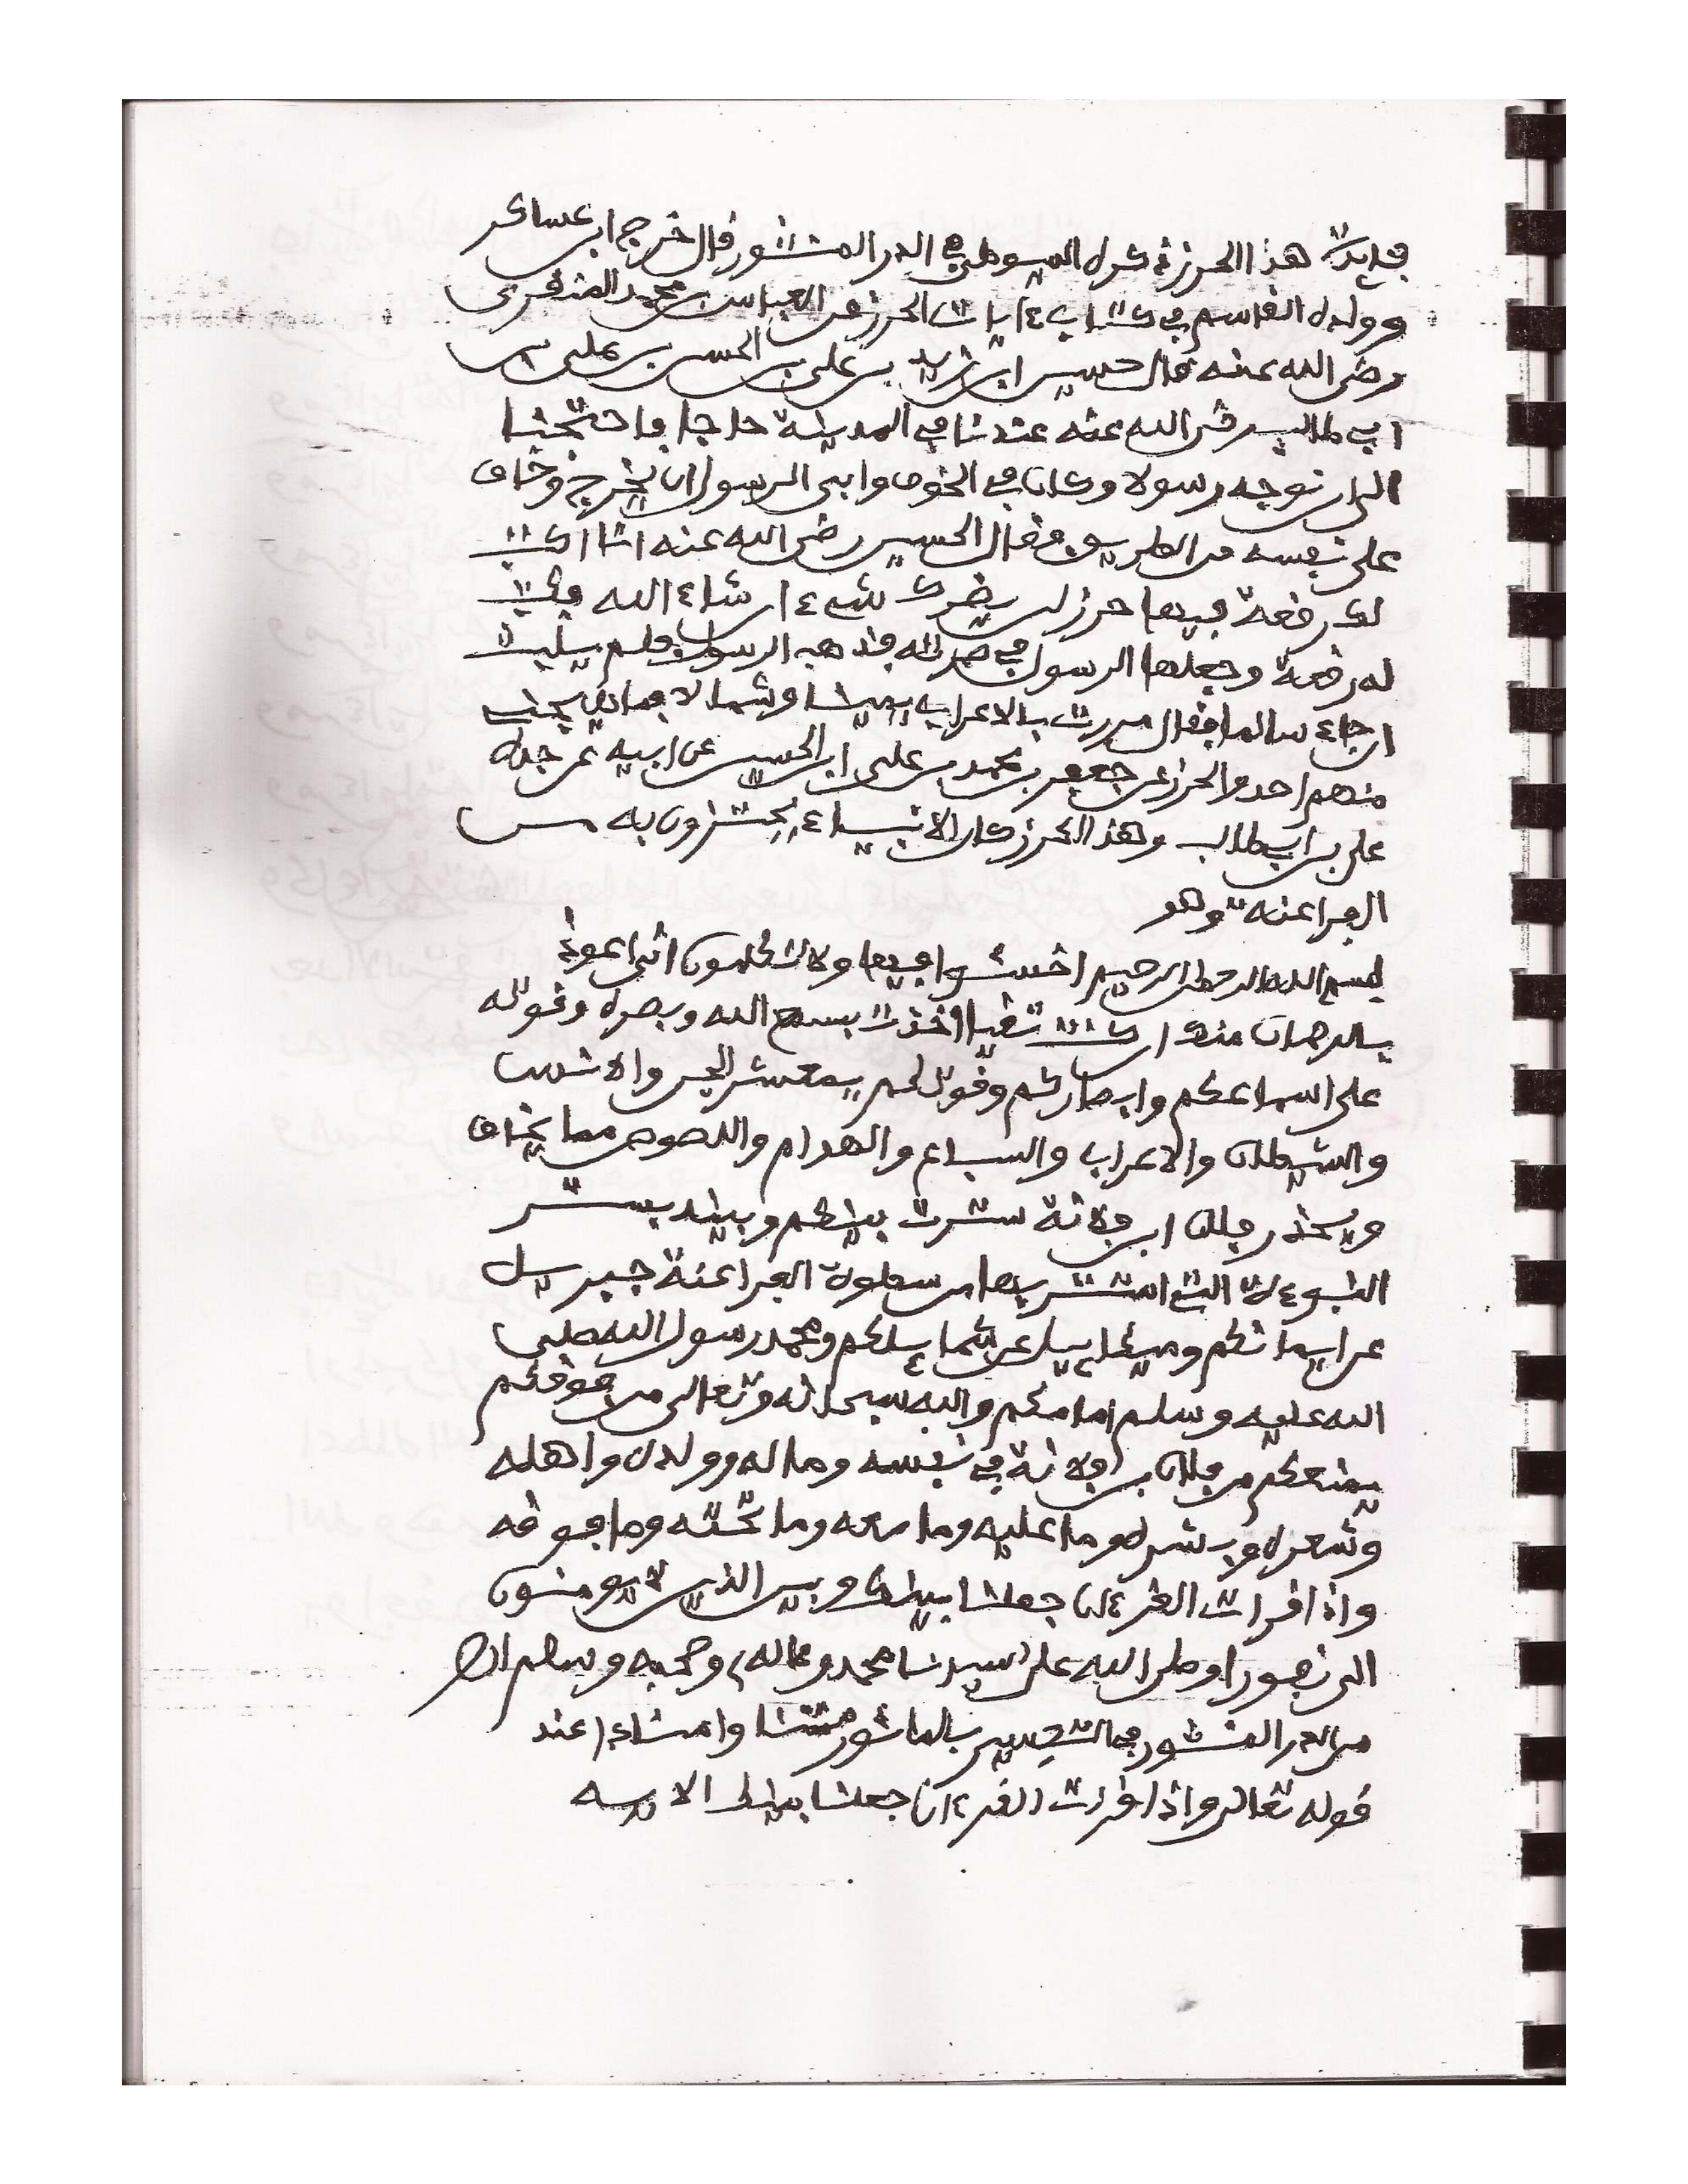 فايدة هذا الحرز ذكره السيوطي في الدر المنثور قال اخرج ابن عساكر
وولده القاسم في كتاب ءايات الحرز عن العباس بن محمد المنقري
رضي الله عنه قال حسين ابن زيد بن علي بن الحسين بن علي بن
ابي طالب رضي الله عنه عندنا في المدينة حاجا فاحتجنا
الى ان نوجه رسولا وكان في الخوف وابى الرسول ان يخرج وخاف
على نفسه من الطريق فقال الحسين رضي الله عنه انا اكتب
لك رقعة فيها حرز لن يضرك شيء ان شاء الله فكتب
له رقعة وجعلها الرسول في صرته فذهب الرسول فلم يلبث
ان جاء سالما فقال مررت بالاعراب يمينا وشمالا فما يهيجني
منهم احد والحرز عن جعفر بن محمد بن علي ابن الحسين عن ابيه عن جده
علي بن ابي طالب وهذا الحرز كان الانبياء يحترزون به من
الفراعنة وهو
بسم الله الرحمن الرحيم اخسئوا فيها ولا تكلمون اني اعوذ
بالرحمان منك ان كنت تقيا اخذت بسمع الله وبصره وقوته
على اسماعكم وابصاركم وقوتكم يمعشر الجن والانس
والشيطن والاعراب والسباع والهوام واللصوص مما يخاف
ويحذر فلان ابن فلانة سترت بينكم وبينه بستر
النبوءة التي استتر بها من سطوة الفراعنة جبريل
عن ايمانكم وميكاييل عن شمايلكم ومحمد رسول الله صلى
الله عليه وسلم امامكم والله سبحانه وتعالى من فوقكم
يمنعكم من فلان بن فلانة في نفسه وماله وولده واهله
وشعره وبشره وما عليه وما معه وما تحته وما فوقه
واذا قرات القرءان جعلنا بينك وبين الذين لا يومنون
الى نفورا وصلى الله على سيدنا محمد وعلى اله وصحبه وسلم اهـ
من الدر المنثور في التفسير بالماثور متنا وامنادا عند
قوله تعالى واذا قرات القرءان جعلنا بينك الاية